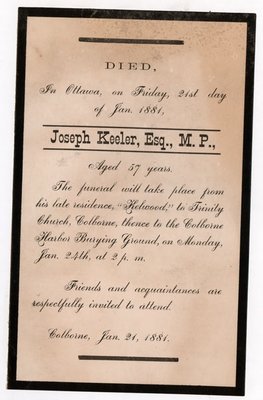 DIED,
In Ottawa, on Friday, 21st day
of Jan. 1881,
Joseph Keeler, Esq., M. P.,
Aged 57 years.
The funeral will take place from
his late residence, "Helwood," to Trinity
Church, Colborne, thence to the Colborne
Harbor Burying Ground, on Monday,
Jan. 24th, at 2 p. m.
Friends and acquaintances are
respectfully invited to attend.
Colborne, Jan. 21, 1881.